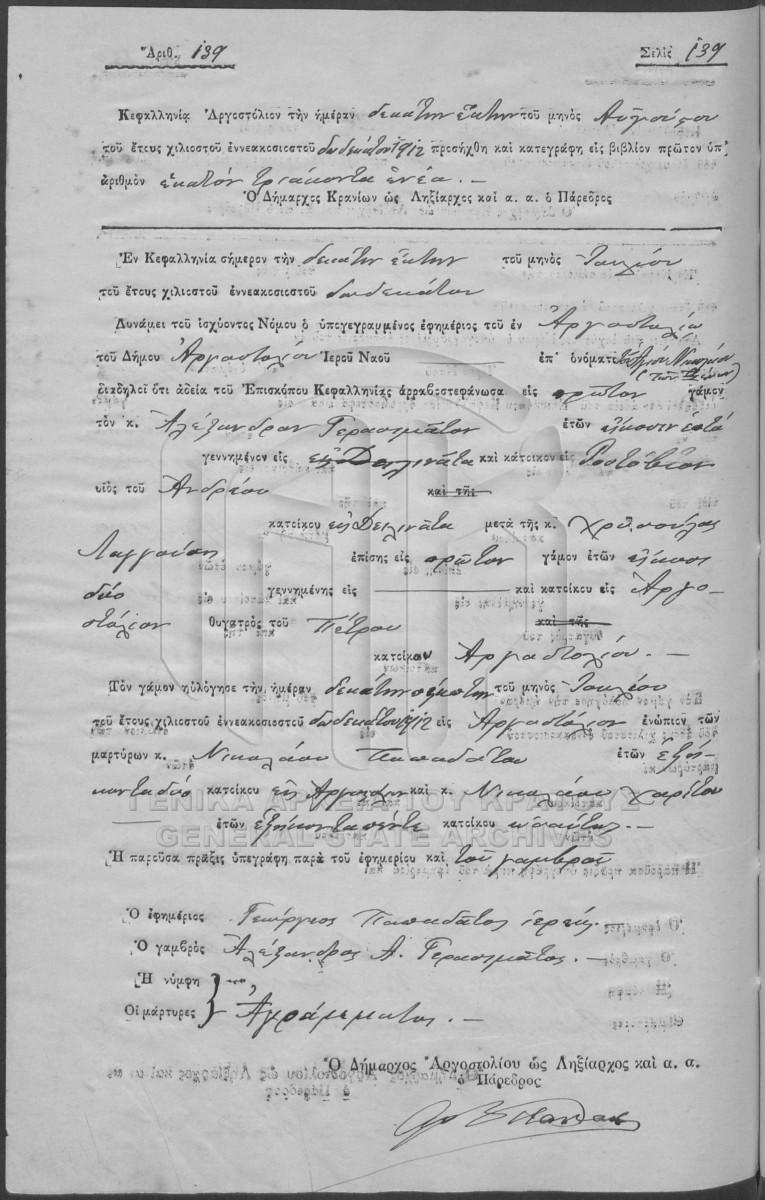 Ἀριθ. 139 Σελὶς 139
Κεφαλληνία Ἀργοστόλιον τὴν ἡμέραν δεκάτην ἕκτην τοῦ μηνὸς Αὐγούστου
τοῦ ἔτους χιλιοστοῦ ἐννεακοσιοστοῦ δωδεκάτου 1912 προσήχθη καὶ κατεγράφη εἰς βιβλίον πρῶτον ὑπ'
ἀριθμὸν ἑκατόν τριάκοντα ἐνέα.—
Ὁ Δήμαρχος Κρανίων ὡς Ληξίαρχος καὶ α. α. ὁ Πάρεδρος
Ἐν Κεφαλληνίᾳ σήμερον τὴν δεκάτην ἕκτην τοῦ μηνὸς Ἰουλίου
τοῦ ἔτους χιλιοστοῦ ἐννεακοσιοστοῦ δωδεκάτου
Δυνάμει τοῦ ἰσχύοντος Νόμου ὁ ὑπογεγραμμένος ἐφημέριος τοῦ ἐν Ἀργοστολίῳ
τοῦ Δήμου Ἀργοστολίου Ἱεροῦ Ναοῦ — ἐπ' ὀνόματι Ἁγίου Νικολάου
(τῶν
διαδηλοῖ ὅτι ἀδείᾳ τοῦ Ἐπισκόπου Κεφαλληνίας ἀρραβοστεφάνωσα εἰς πρῶτον γάμον
τὸν κ. Ἀλέξανδρον Γερασιμᾶτον ἐτῶν εἴκοσιν ἑπτά
γεννημένον εἰς Δειλινᾶτα καὶ κάτοικον εἰς Ροστόβιον
υἱὸς τοῦ Ἀνδρέου καὶ τῆς
κατοίκου εἰς Δειλινᾶτα μετὰ τῆς κ. Χρυσούλας
Λαγγούση ἐπίσης εἰς πρῶτον γάμον ἐτῶν εἴκοσι
δύο γεννημένης εἰς — καὶ κατοίκου εἰς Ἀργο-
στόλιον θυγατρὸς τοῦ Πέτρου καὶ τῆς
κατοίκου Ἀργοστολίου.—
Τὸν γάμον ηὐλόγησε τὴν ἡμέραν δεκάτην πέμπτην τοῦ μηνὸς Ἰουλίου
τοῦ ἔτους χιλιοστοῦ ἐννεακοσιοστοῦ δωδεκάτου 1912 εἰς Ἀργοστόλιον ἐνώπιον τῶν
μαρτύρων κ. Νικολάου Παπαδάτου ἐτῶν ἑξή-
κονταδύο κατοίκου εἰς Ἀργοστόλιον καὶ κ. Νικολάου Χαρίτου
— ἐτῶν ἑξήκονταπέντε κατοίκου ὡσαύτως.—
ΓΕΝΙΚΑ ΑΡΧΕΙΑ ΤΟΥ ΚΡΑΤΟΥΣ
GENERAL STATE ARCHIVES
Ἡ παροῦσα πρᾶξις ὑπεγράφη παρὰ τοῦ ἐφημερίου καὶ τοῦ γαμβροῦ
Ὁ ἐφημέριος Γεώργιος Παπαδᾶτος ἱερεύς.—
Ὁ γαμβρὸς Ἀλέξανδρος Α. Γερασιμᾶτος.—
Ἡ νύμφη
Οἱ μάρτυρες } Ἀγράμματοι.—
Ὁ Δήμαρχος Ἀργοστολίου ὡς Ληξίαρχος καὶ α. α.
ὁ Πάρεδρος